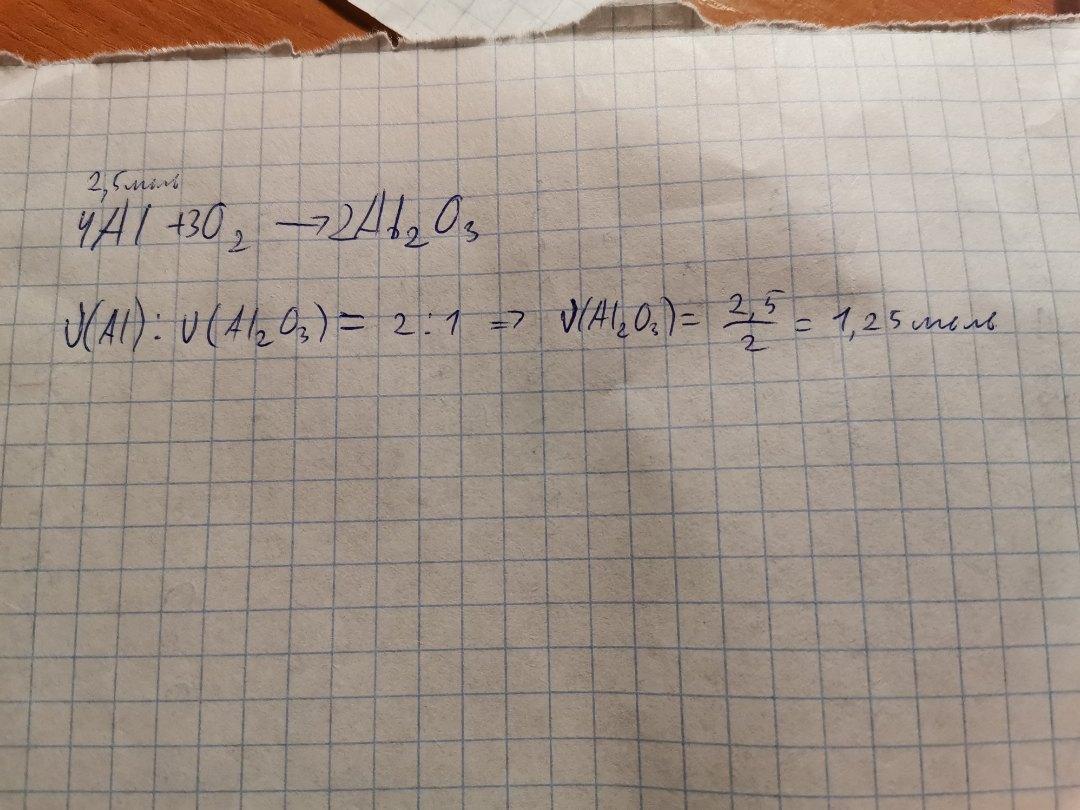 2,5 моль
4Al + 3O₂ → 2Al₂O₃
ν(Al) : ν(Al₂O₃) = 2 : 1 => ν(Al₂O₃) = 2,5/2 = 1,25 моль